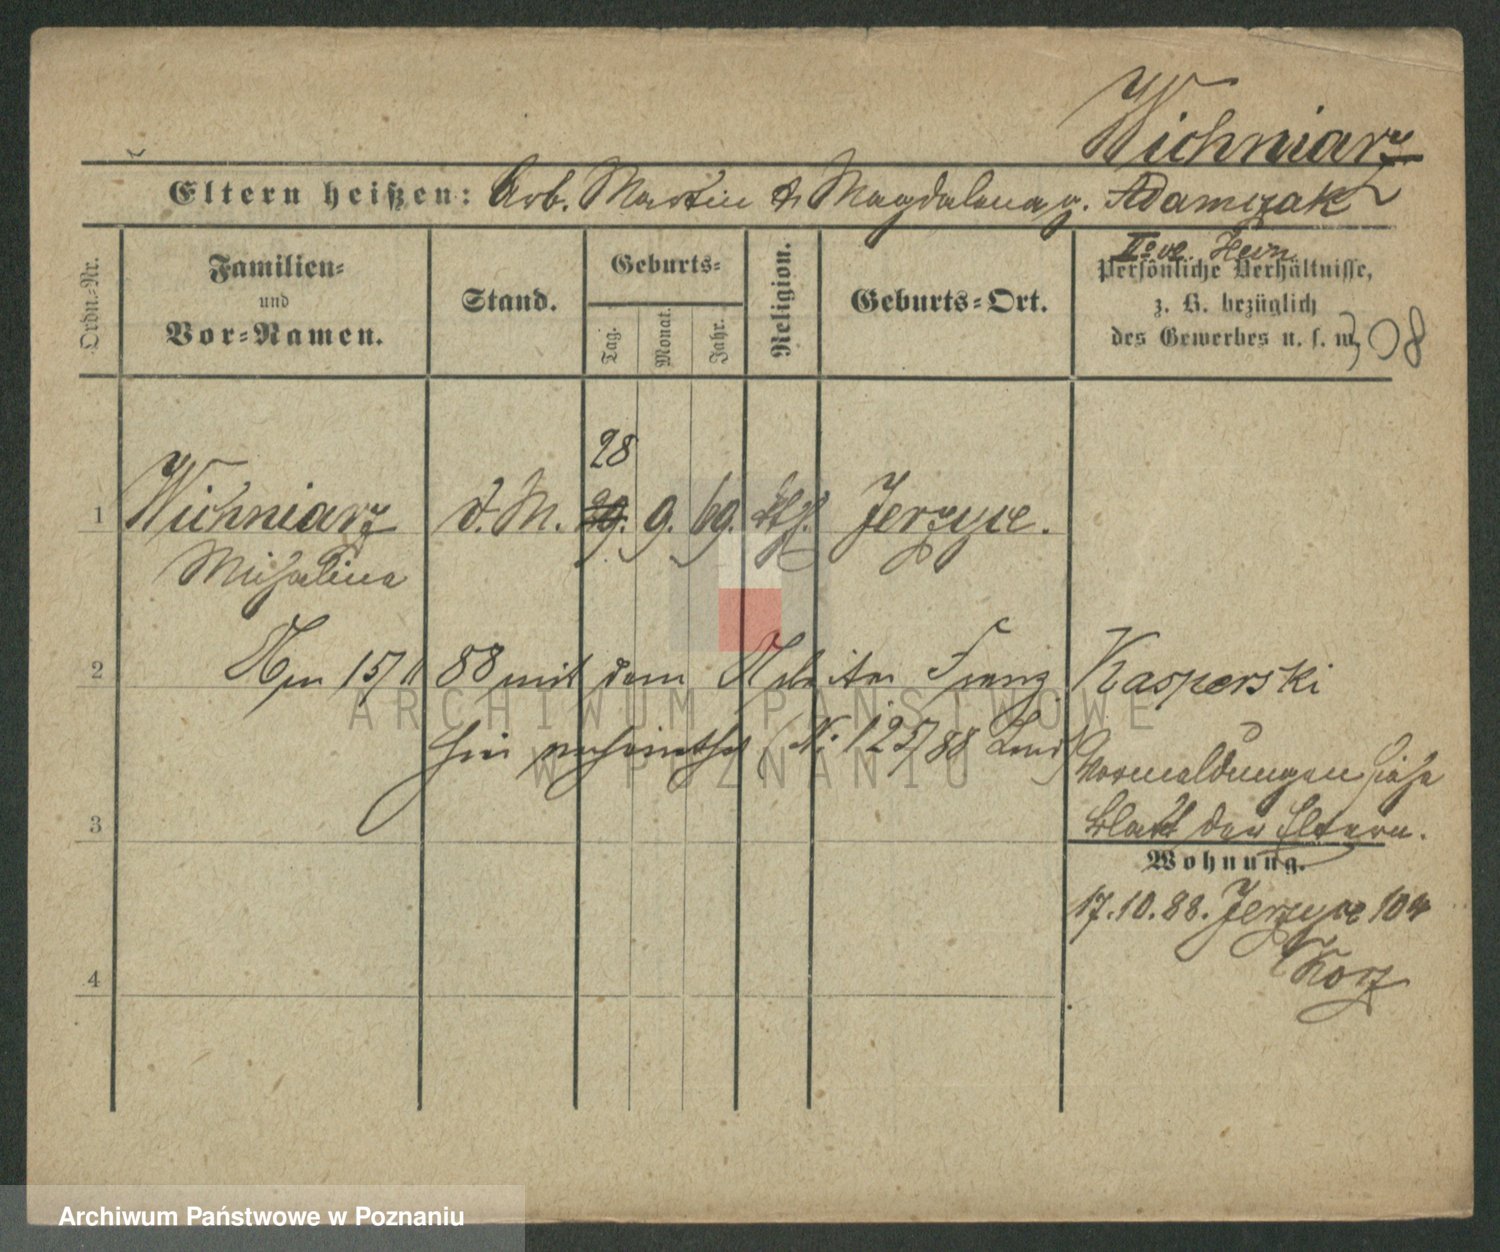 Wichniarz
Eltern heißen: Arb. Martin & Magdalena g. Adamczak
IIo
Ordn.-Nr.
Familien-
und
Vor-Namen.
Stand.
Geburts-
Tag.
Monat.
Jahr.
Religion.
Geburts-Ort.
Persönliche Verhältnisse,
z. B. bezüglich
des Gewerbes u. s. w.
308
28
1 Wichniarz d. M. 29. 9. 69. kth. Jerzyce.
Michalina
2 88 mit dem Arbeiter Franz Kasperski
hier verheirathet (No 125/88 Land)
Vormeldungen siehe
3 Blatt der Eltern.
Wohnung.
17.10.88. Jerzyce 104
4
ARCHIWUM PAŃSTWOWE
W POZNANIU
Archiwum Państwowe w Poznaniu